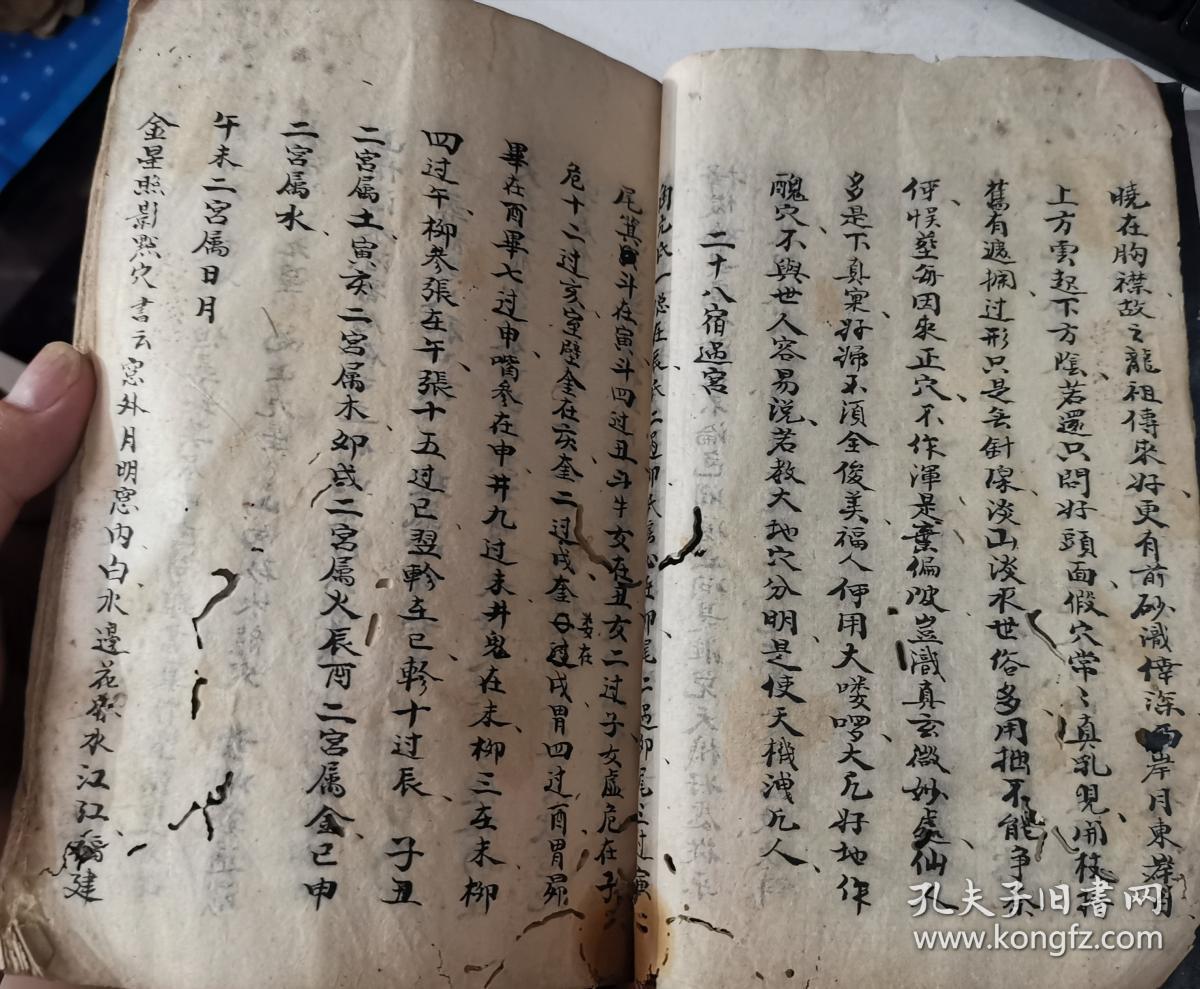 曉在胸襟故之龍祖傳來好更有前砂識倖深西岸月東岸明
上方雲起下方陰若還只問好頭面假穴常々真乳現開枝
舊有遮攔过形只是無針線淡山淡水世俗多用拙不能争
伊悮塟每因來正穴不作渾是棄偏陂豈識真玄微妙處仙人
多是下真窠好歸不須全俊美福人何用大嘍啰大凡好地作
醜穴不與世人容易说若教大地穴分明是使天機洩凡人
二十八宿過宮
尾箕斗在寅斗四过丑斗牛女在丑女二过子女虛危在子
危十二过亥室壁奎在亥奎二过戌奎婁在戌胃四过酉胃昴
畢在酉畢七过申嘴參在申井九过未井鬼在未柳三在未柳
四过午柳參張在午張十五过巳翌軫在巳軫十过辰 子丑
二宮属土寅亥二宮属木卯戌二宮属火辰酉二宮属金巳申
二宮属水
午未二宮属日月
金星照影點穴書云窓外月明窓内白水邊花發水江紅橋建
孔夫子旧書网
www.kongfz.com